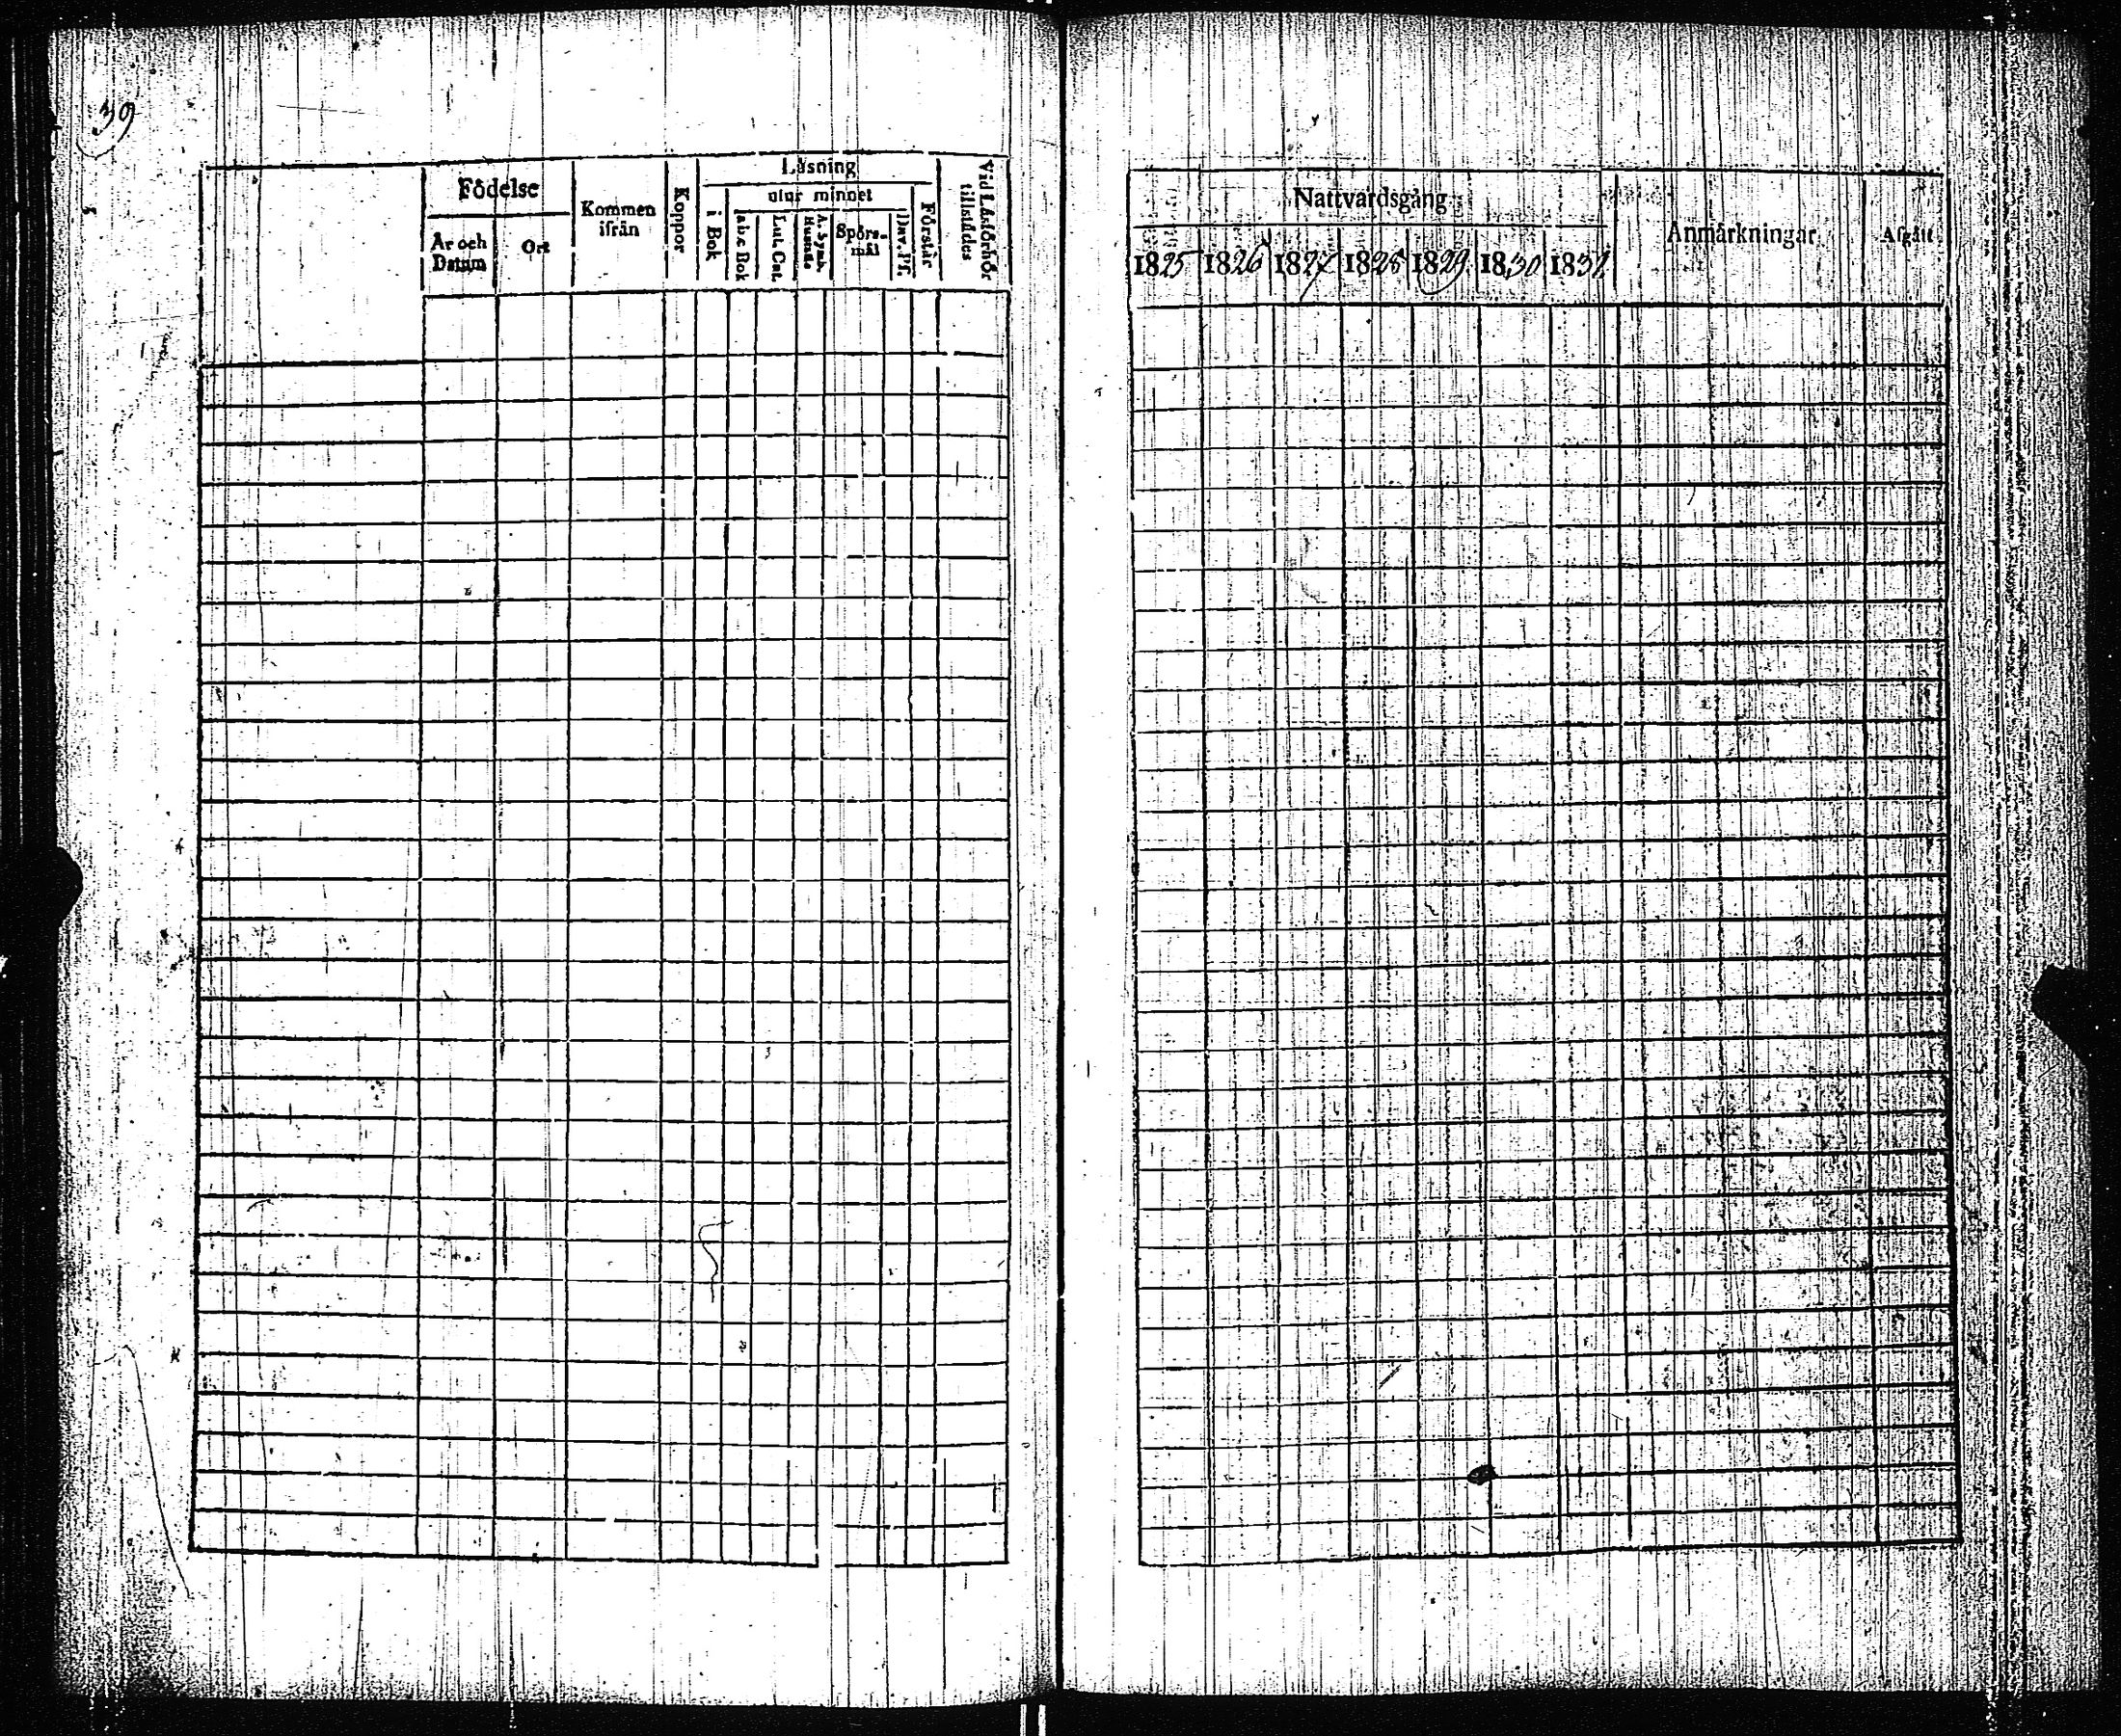 39
Födelse
År och Datum
Ort
Kommen ifrån
Koppor
Läsning
i Bok
utur minnet
a.b.c Bok
Lut. Cat.
A. Symb. Hustafla
Spörs-mål
Dav. Ps.
Förstår
Vid Läsförhör tillstädes
Nattvardsgång
1825 1826 1827 1828 1829 1830 1831
Anmärkningar
Afgått